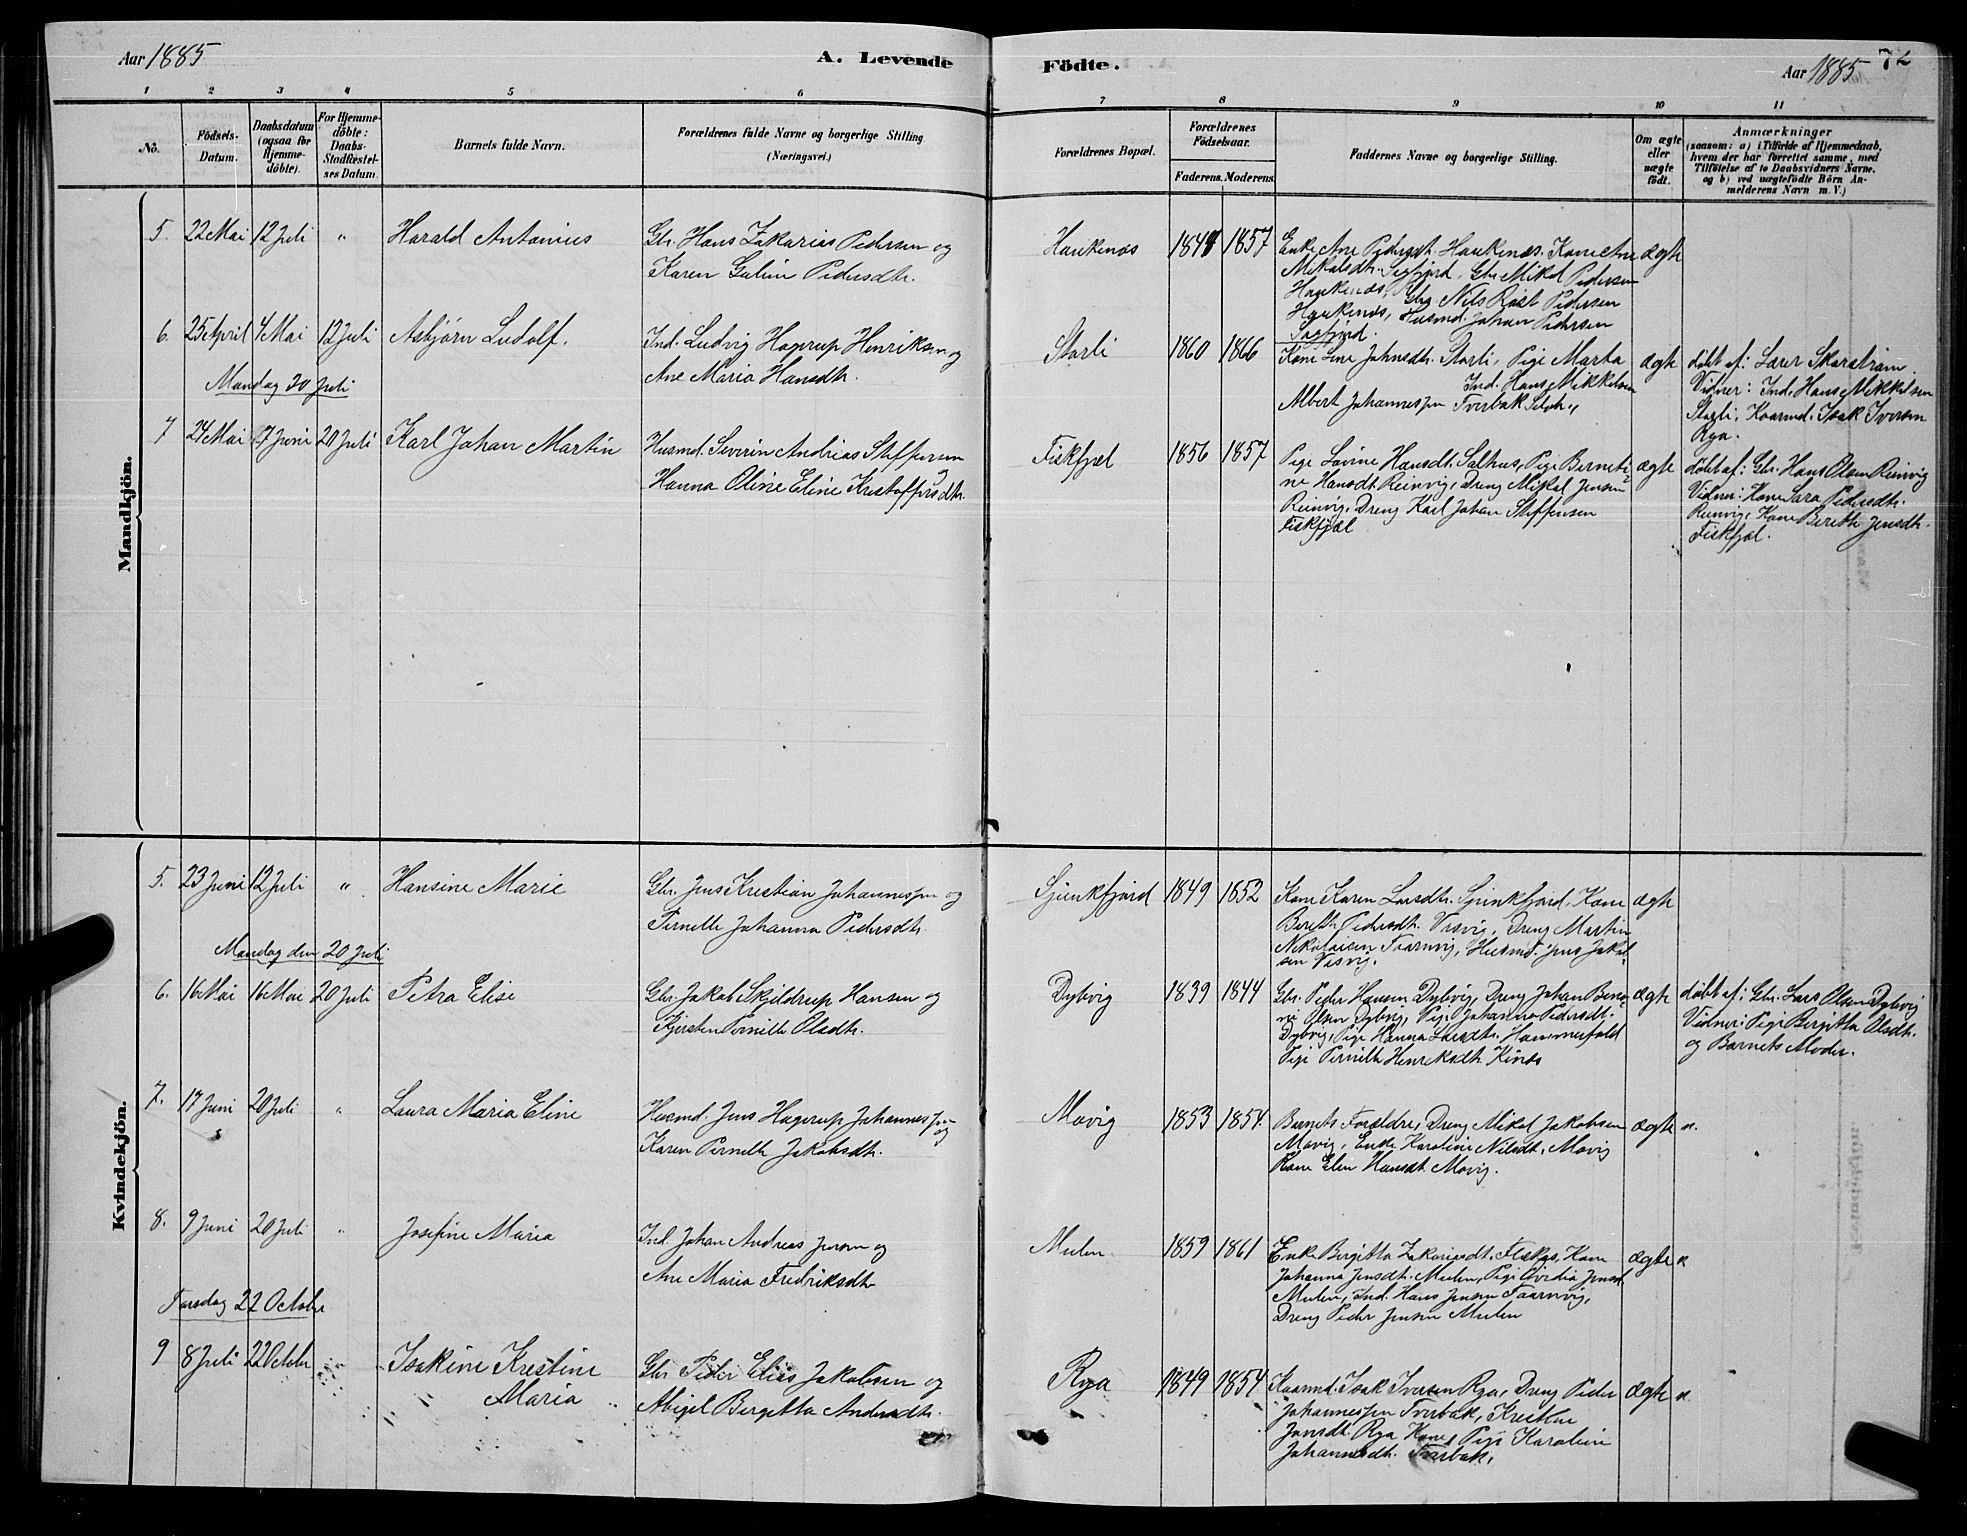 Aar 1885
A. Levende
Födte.
Aar 1885
72
1 2 3 4 5 6 7 8 9 10 11
No.
Födsels-
Datum.
Daabsdatum
(ogsaa for
Hjemme-
döbte).
For Hjemme-
döbte:
Daabs-
Stadfæstel-
ses Datum.
Barnets fulde Navn.
Forældrenes fulde Navne og borgerlige Stilling
(Næringsvei.)
Forældrenes Bopæl.
Forældrenes
Födselsaar.
Faderens. Moderens.
Faddernes Navne og borgerlige Stilling.
Om ægte
eller
uægte
födt.
Anmærkninger
(saasom: a) i Tilfælde af Hjemmedaab,
hvem der har forrettet samme, med
Tilföielse af to Daabsvidners Navne,
og b) ved uægtefödte Börn An-
melderens Navn m. V.)
Mandkjön.
5. 22 Mai 12 Juli " Harald Antonius
Gbr. Hans Zakarias Pedersen og
Karen Guline Pedersdtr.
Haukenæs 1844 1857
Enke Ane Pedersdt. Haukenæs. Kone Ane
Mikalsdtr. Sagfjord. Gbr. Mikal Pedersen
Haukenæs, Gbr. Nils Röst Pedersen
Haukenæs, Husmd. Johan Pedersen
Sagfjord.
ægte
6. 25 April 4 Mai 12 Juli Asbjörn Ludolf.
Ind. Ludvig Hagerup Henriksen og
Ane Maria Hansdtr.
Storli 1860 1866
Kone Line Johnsdtr. Storli, Pige Marta
Ind. Hans Mikkelsen
Albert Johannessen Tverbak
ægte
döbt af: Lærer Skarström.
Vidner: Ind. Hans Mikkelsen
Storli, Kaarmd. Isak Iversen
Rya.
Mandag 20 Juli
7 24 Mai 7 Juni 20 Juli Karl Johan Martin
Husmd. Severin Andrias Steffensen
Hanna Oline Eline Kristoffersdtr.
Fiskfjel 1856 1857
Pige Lovine Hansdt. Salhus, Pige Berneti-
ne Hansdt. Reinvig, Dreng Mikal Jensen
Reinvig. Dreng Karl Johan Steffensen
Fiskfjel
ægte
döbt af: Gbr. Hans Olsen Reinvig
Vidner: Kone Sara Pedersdtr.
Reinvig, Kone Berith Jensdtr.
Fiskfjel.
Kvindekjön.
5. 23 Juni 12 Juli " Hansine Marie
Gbr. Jens Kristian Johannessen og
Pernille Johanna Pedersdtr.
Sjunkfjord 1849 1852
Kone Karen Larsdtr. Sjunkfjord, Kone
Berith Pedersdt. Vasvig, Dreng Martin
Nikolaisen Taarnvig, Husmd. Jens Jakob-
sen Vasvig.
ægte
Mandag den 20 Juli
6. 16 Mai 16 Mai 20 Juli Petra Elise
Gbr. Jakob Skjeldrup Hansen og
Kjersten Pernille Olsdtr.
Dybvig 1839 1844
Gbr. Peder Hansen Dybvig, Dreng Johan Beno-
ni Olsen Dybvig, Pige Johanna Pedersdt.
Dybvig, Pige Hanna Larsdtr. Hammerfald
Pige Pernille Henriksdtr. Kinæs
ægte
döbt af: Gbr. Lars Olsen Dybvig
Vidner: Pige Birgitta Olsdtr.
og Barnets Moder.
7. 17 Juni 20 Juli " Laura Maria Eline
Husmd. Jens Hagerup Johannessen
og
Karen Pernille Jakobsdtr.
Movig 1853 1854.
Barnets Forældre, Dreng Mikal Jakobsen
Movig, Enke Karoline Nilsdt. Movig
Kone Elen Hansdt. Movig.
ægte
8. 9 Juni 20 Juli " Josefine Maria
Ind. Johan Andreas Jensen og
Ane Maria Fredriksdtr
Mulen 1859 1861
Enke Birgitta Zakariasdt. Flæskæs, Kone
Johanna Jensdt. Mulen, Pige Ovidia Jensdt.
Mulen, Ind. Hans Jensen Taarnvig,
Dreng Peder Jensen Mulen
ægte
Torsdag 22 October
9 8 Juli 22 October Isakine Kristine
Maria
Gbr Peder Elias Jakobsen og
Abigel Birgitta Andersdtr.
Rya 1849 1854
Kaarmd. Isak Iversen Rya, Dreng Peder
Johannessen Tverbak, Kristine
Jonsdt. Rya Kone, Pige Karoline
Johannesdtr. Tverbak.
ægte